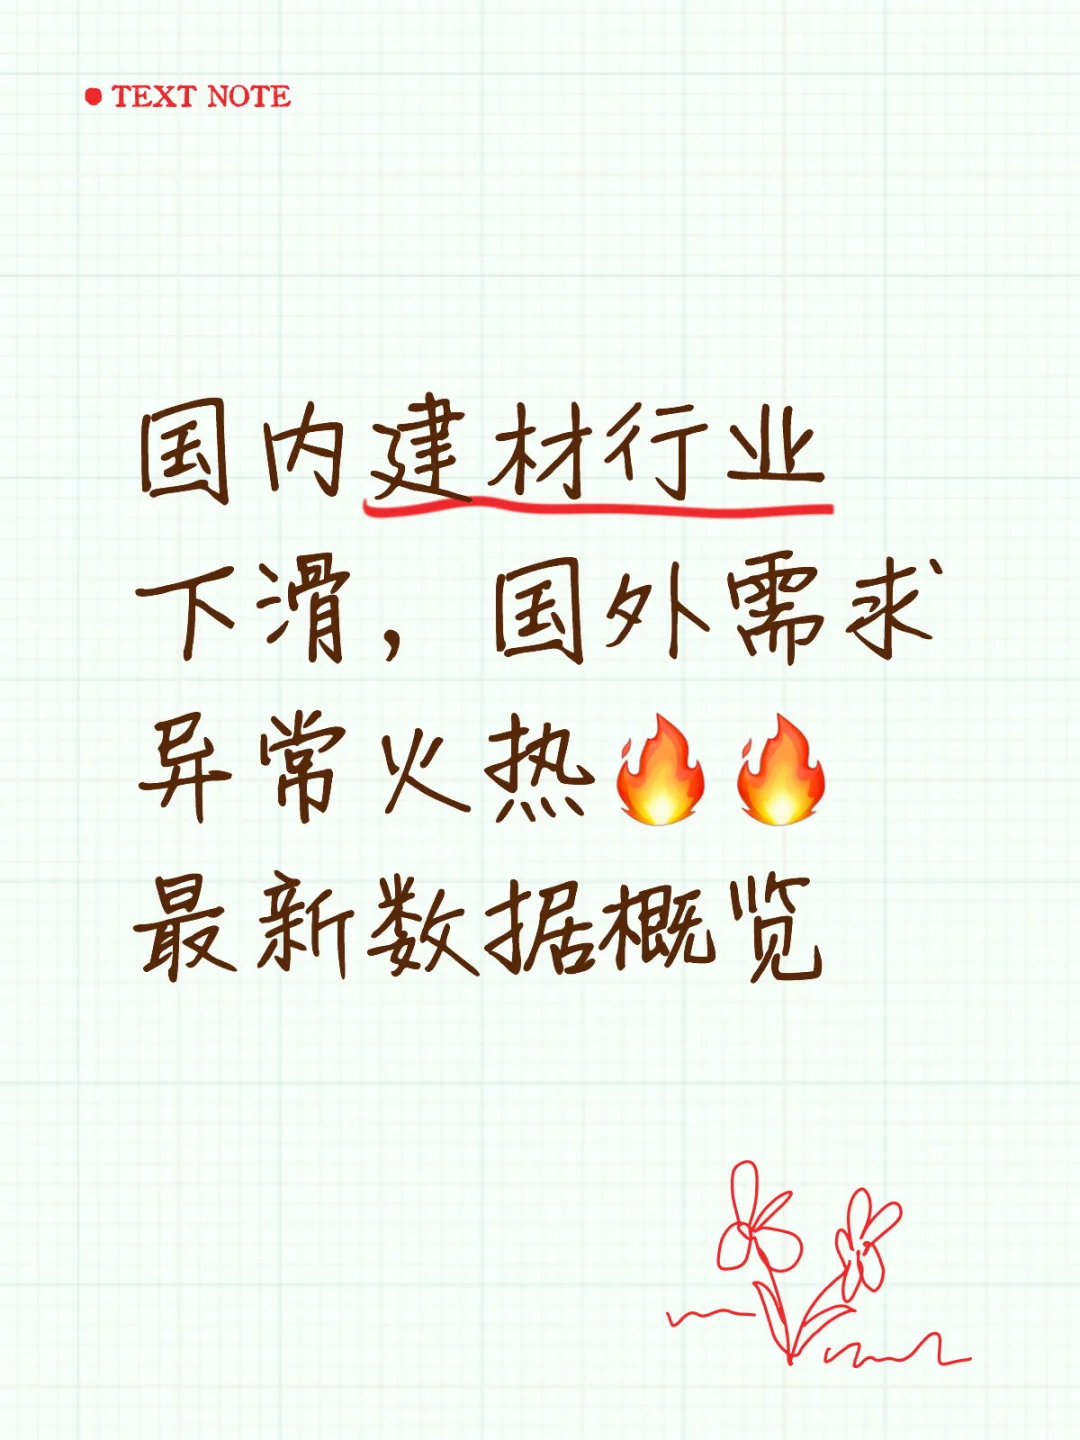 TEXT NOTE
国内建材行业
下滑，国外需求
异常火热🔥🔥
最新数据概览